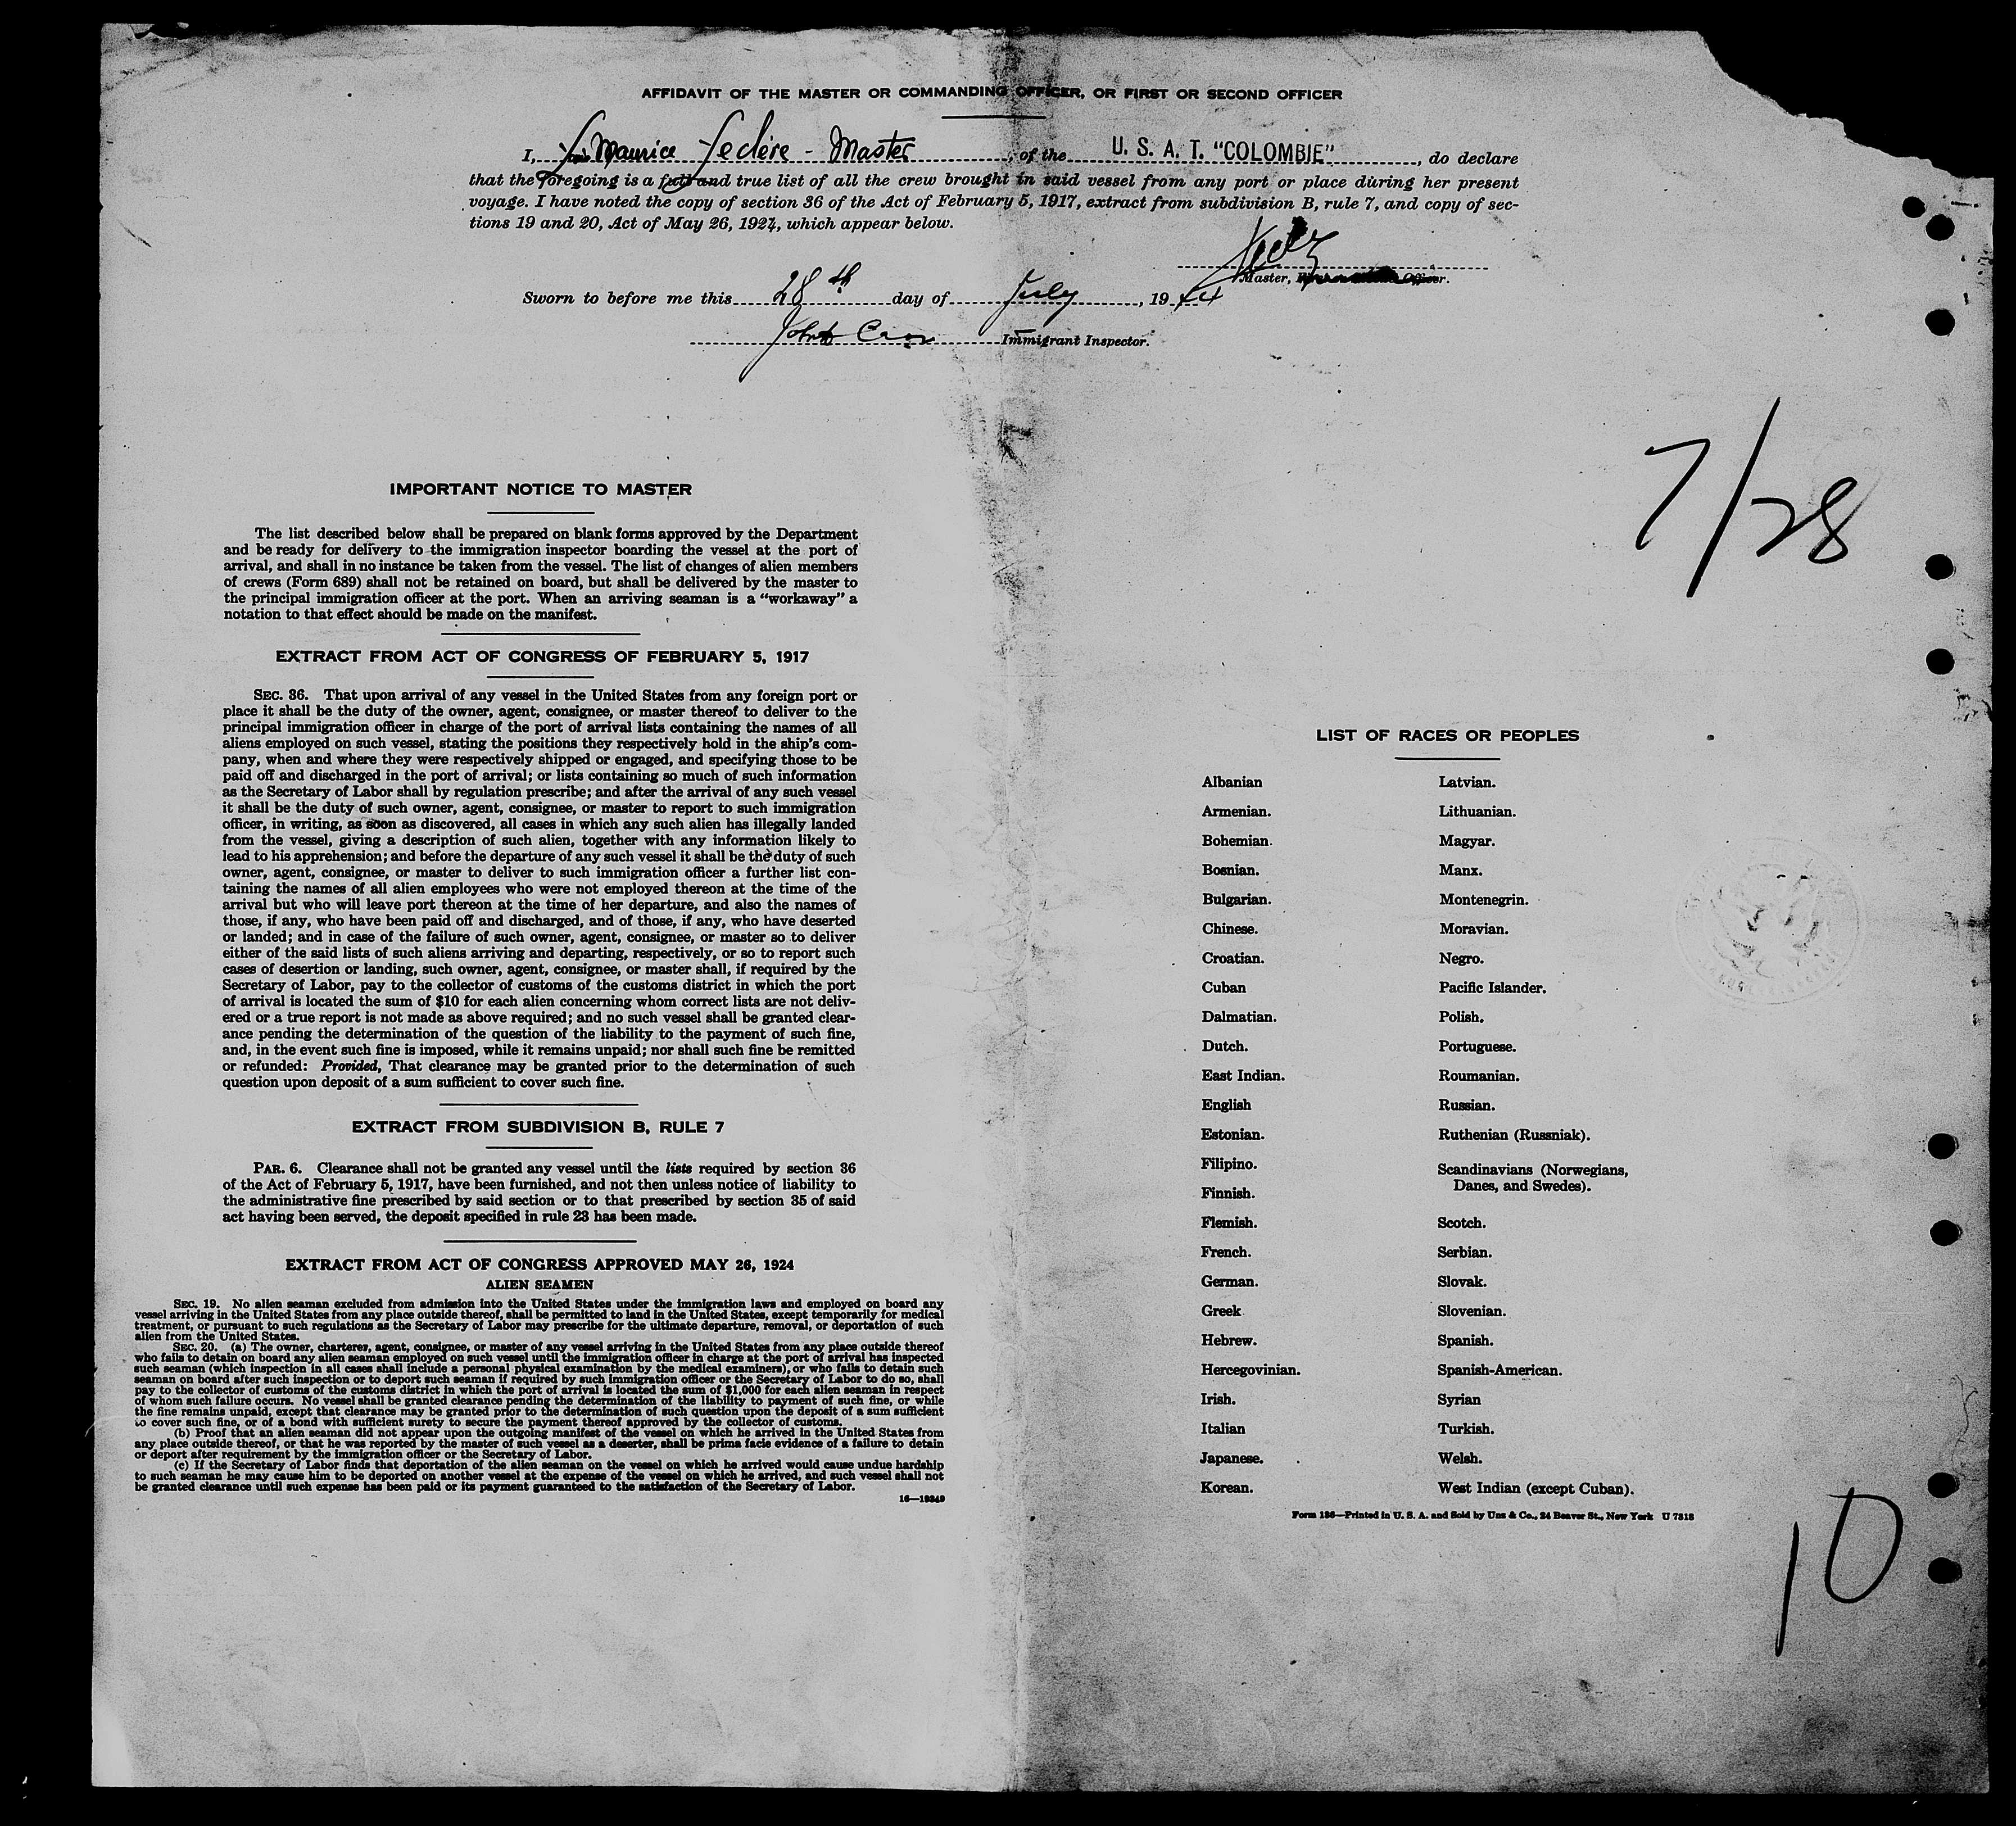 AFFIDAVIT OF THE MASTER OR COMMANDING OFFICER, OR FIRST OR SECOND OFFICER
I, Maurice Leclère - Master, of the U. S. A. T. "COLOMBIE", do declare
that the foregoing is a full and true list of all the crew brought in said vessel from any port or place during her present
voyage. I have noted the copy of section 36 of the Act of February 5, 1917, extract from subdivision B, rule 7, and copy of sec-
tions 19 and 20, Act of May 26, 1924, which appear below.
Master, Officer.
Sworn to before me this 28th day of July, 1944
John Immigrant Inspector.
7/28
IMPORTANT NOTICE TO MASTER
The list described below shall be prepared on blank forms approved by the Department
and be ready for delivery to the immigration inspector boarding the vessel at the port of
arrival, and shall in no instance be taken from the vessel. The list of changes of alien members
of crews (Form 689) shall not be retained on board, but shall be delivered by the master to
the principal immigration officer at the port. When an arriving seaman is a "workaway" a
notation to that effect should be made on the manifest.
EXTRACT FROM ACT OF CONGRESS OF FEBRUARY 5, 1917
SEC. 36. That upon arrival of any vessel in the United States from any foreign port or
place it shall be the duty of the owner, agent, consignee, or master thereof to deliver to the
principal immigration officer in charge of the port of arrival lists containing the names of all
aliens employed on such vessel, stating the positions they respectively hold in the ship's com-
pany, when and where they were respectively shipped or engaged, and specifying those to be
paid off and discharged in the port of arrival; or lists containing so much of such information
as the Secretary of Labor shall by regulation prescribe; and after the arrival of any such vessel
it shall be the duty of such owner, agent, consignee, or master to report to such immigration
officer, in writing, as soon as discovered, all cases in which any such alien has illegally landed
from the vessel, giving a description of such alien, together with any information likely to
lead to his apprehension; and before the departure of any such vessel it shall be the duty of such
owner, agent, consignee, or master to deliver to such immigration officer a further list con-
taining the names of all alien employees who were not employed thereon at the time of the
arrival but who will leave port thereon at the time of her departure, and also the names of
those, if any, who have been paid off and discharged, and of those, if any, who have deserted
or landed; and in case of the failure of such owner, agent, consignee, or master so to deliver
either of the said lists of such aliens arriving and departing, respectively, or so to report such
cases of desertion or landing, such owner, agent, consignee, or master shall, if required by the
Secretary of Labor, pay to the collector of customs of the customs district in which the port
of arrival is located the sum of $10 for each alien concerning whom correct lists are not deliv-
ered or a true report is not made as above required; and no such vessel shall be granted clear-
ance pending the determination of the question of the liability to the payment of such fine,
and, in the event such fine is imposed, while it remains unpaid; nor shall such fine be remitted
or refunded: Provided, That clearance may be granted prior to the determination of such
question upon deposit of a sum sufficient to cover such fine.
EXTRACT FROM SUBDIVISION B, RULE 7
PAR. 6. Clearance shall not be granted any vessel until the lists required by section 36
of the Act of February 5, 1917, have been furnished, and not then unless notice of liability to
the administrative fine prescribed by said section or to that prescribed by section 35 of said
act having been served, the deposit specified in rule 23 has been made.
EXTRACT FROM ACT OF CONGRESS APPROVED MAY 26, 1924
ALIEN SEAMEN
SEC. 19. No alien seaman excluded from admission into the United States under the immigration laws and employed on board any
vessel arriving in the United States from any place outside thereof, shall be permitted to land in the United States, except temporarily for medical
treatment, or pursuant to such regulations as the Secretary of Labor may prescribe for the ultimate departure, removal, or deportation of such
alien from the United States.
SEC. 20. (a) The owner, charterer, agent, consignee, or master of any vessel arriving in the United States from any place outside thereof
who fails to detain on board any alien seaman employed on such vessel until the immigration officer in charge at the port of arrival has inspected
such seaman (which inspection in all cases shall include a personal physical examination by the medical examiners), or who fails to detain such
seaman on board after such inspection or to deport such seaman if required by such immigration officer or the Secretary of Labor to do so, shall
pay to the collector of customs of the customs district in which the port of arrival is located the sum of $1,000 for each alien seaman in respect
of whom such failure occurs. No vessel shall be granted clearance pending the determination of the liability to payment of such fine, or while
the fine remains unpaid, except that clearance may be granted prior to the determination of such question upon the deposit of a sum sufficient
to cover such fine, or of a bond with sufficient surety to secure the payment thereof approved by the collector of customs.
(b) Proof that an alien seaman did not appear upon the outgoing manifest of the vessel on which he arrived in the United States from
any place outside thereof, or that he was reported by the master of such vessel as a deserter, shall be prima facie evidence of a failure to detain
or deport after requirement by the immigration officer or the Secretary of Labor.
(c) If the Secretary of Labor finds that deportation of the alien seaman on the vessel on which he arrived would cause undue hardship
to such seaman he may cause him to be deported on another vessel at the expense of the vessel on which he arrived, and such vessel shall not
be granted clearance until such expense has been paid or its payment guaranteed to the satisfaction of the Secretary of Labor.
16—19349
LIST OF RACES OR PEOPLES
Albanian
Armenian.
Bohemian.
Bosnian.
Bulgarian.
Chinese.
Croatian.
Cuban
Dalmatian.
Dutch.
East Indian.
English
Estonian.
Filipino.
Finnish.
Flemish.
French.
German.
Greek
Hebrew.
Hercegovinian.
Irish.
Italian
Japanese.
Korean.
Latvian.
Lithuanian.
Magyar.
Manx.
Montenegrin.
Moravian.
Negro.
Pacific Islander.
Polish.
Portuguese.
Roumanian.
Russian.
Ruthenian (Russniak).
Scandinavians (Norwegians,
Danes, and Swedes).
Scotch.
Serbian.
Slovak.
Slovenian.
Spanish.
Spanish-American.
Syrian
Turkish.
Welsh.
West Indian (except Cuban).
Form 136—Printed in U. S. A. and Sold by Unz & Co., 24 Beaver St., New York U 7313
10